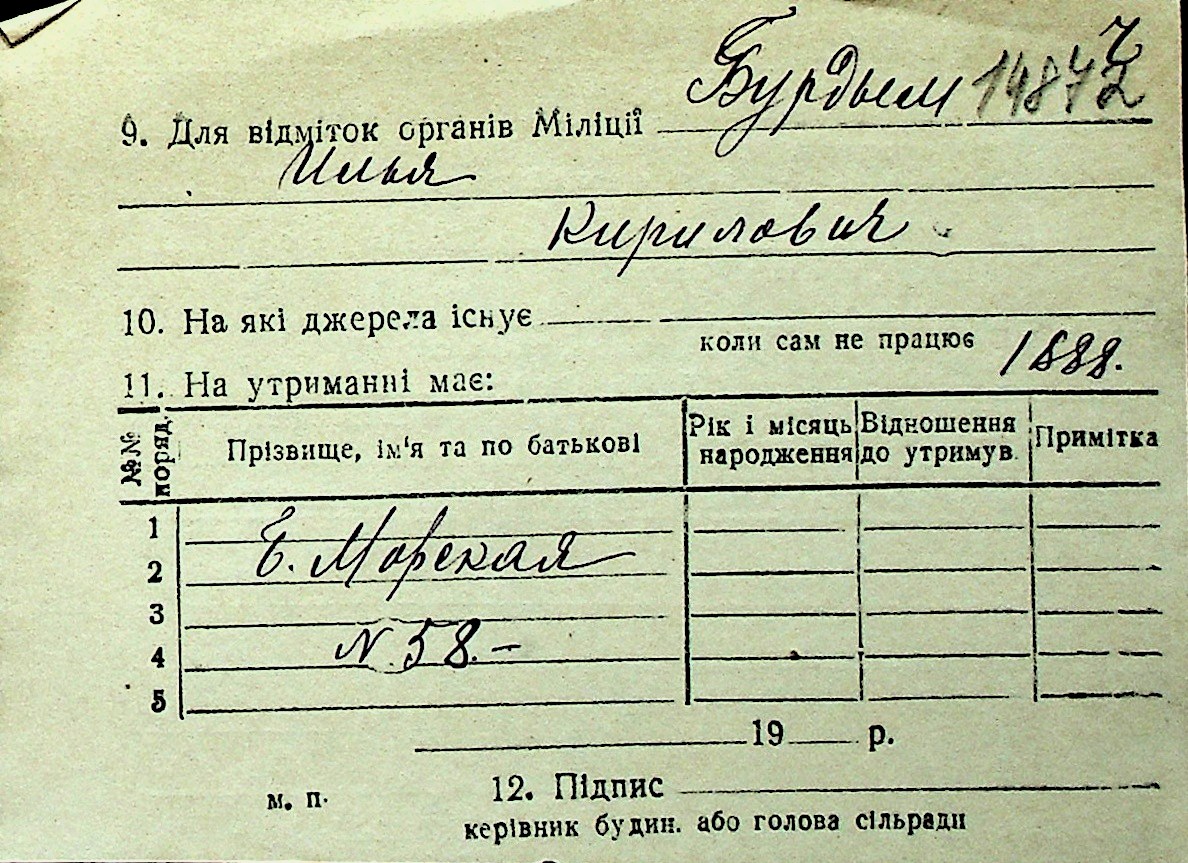 Бурдым 14872
9. Для відміток органів Міліції
Илья
Кирилович
10. На які джерела існує
коли сам не працює 1888.
11. На утриманні має:
№№ поряд. Прізвище, ім'я та по батькові Рік і місяць народження Відношення до утримув. Примітка
1
Б. Морская
2
3
N 58.-
4
5
19 р.
м. п. 12. Підпис
керівник будин. або голова сільради